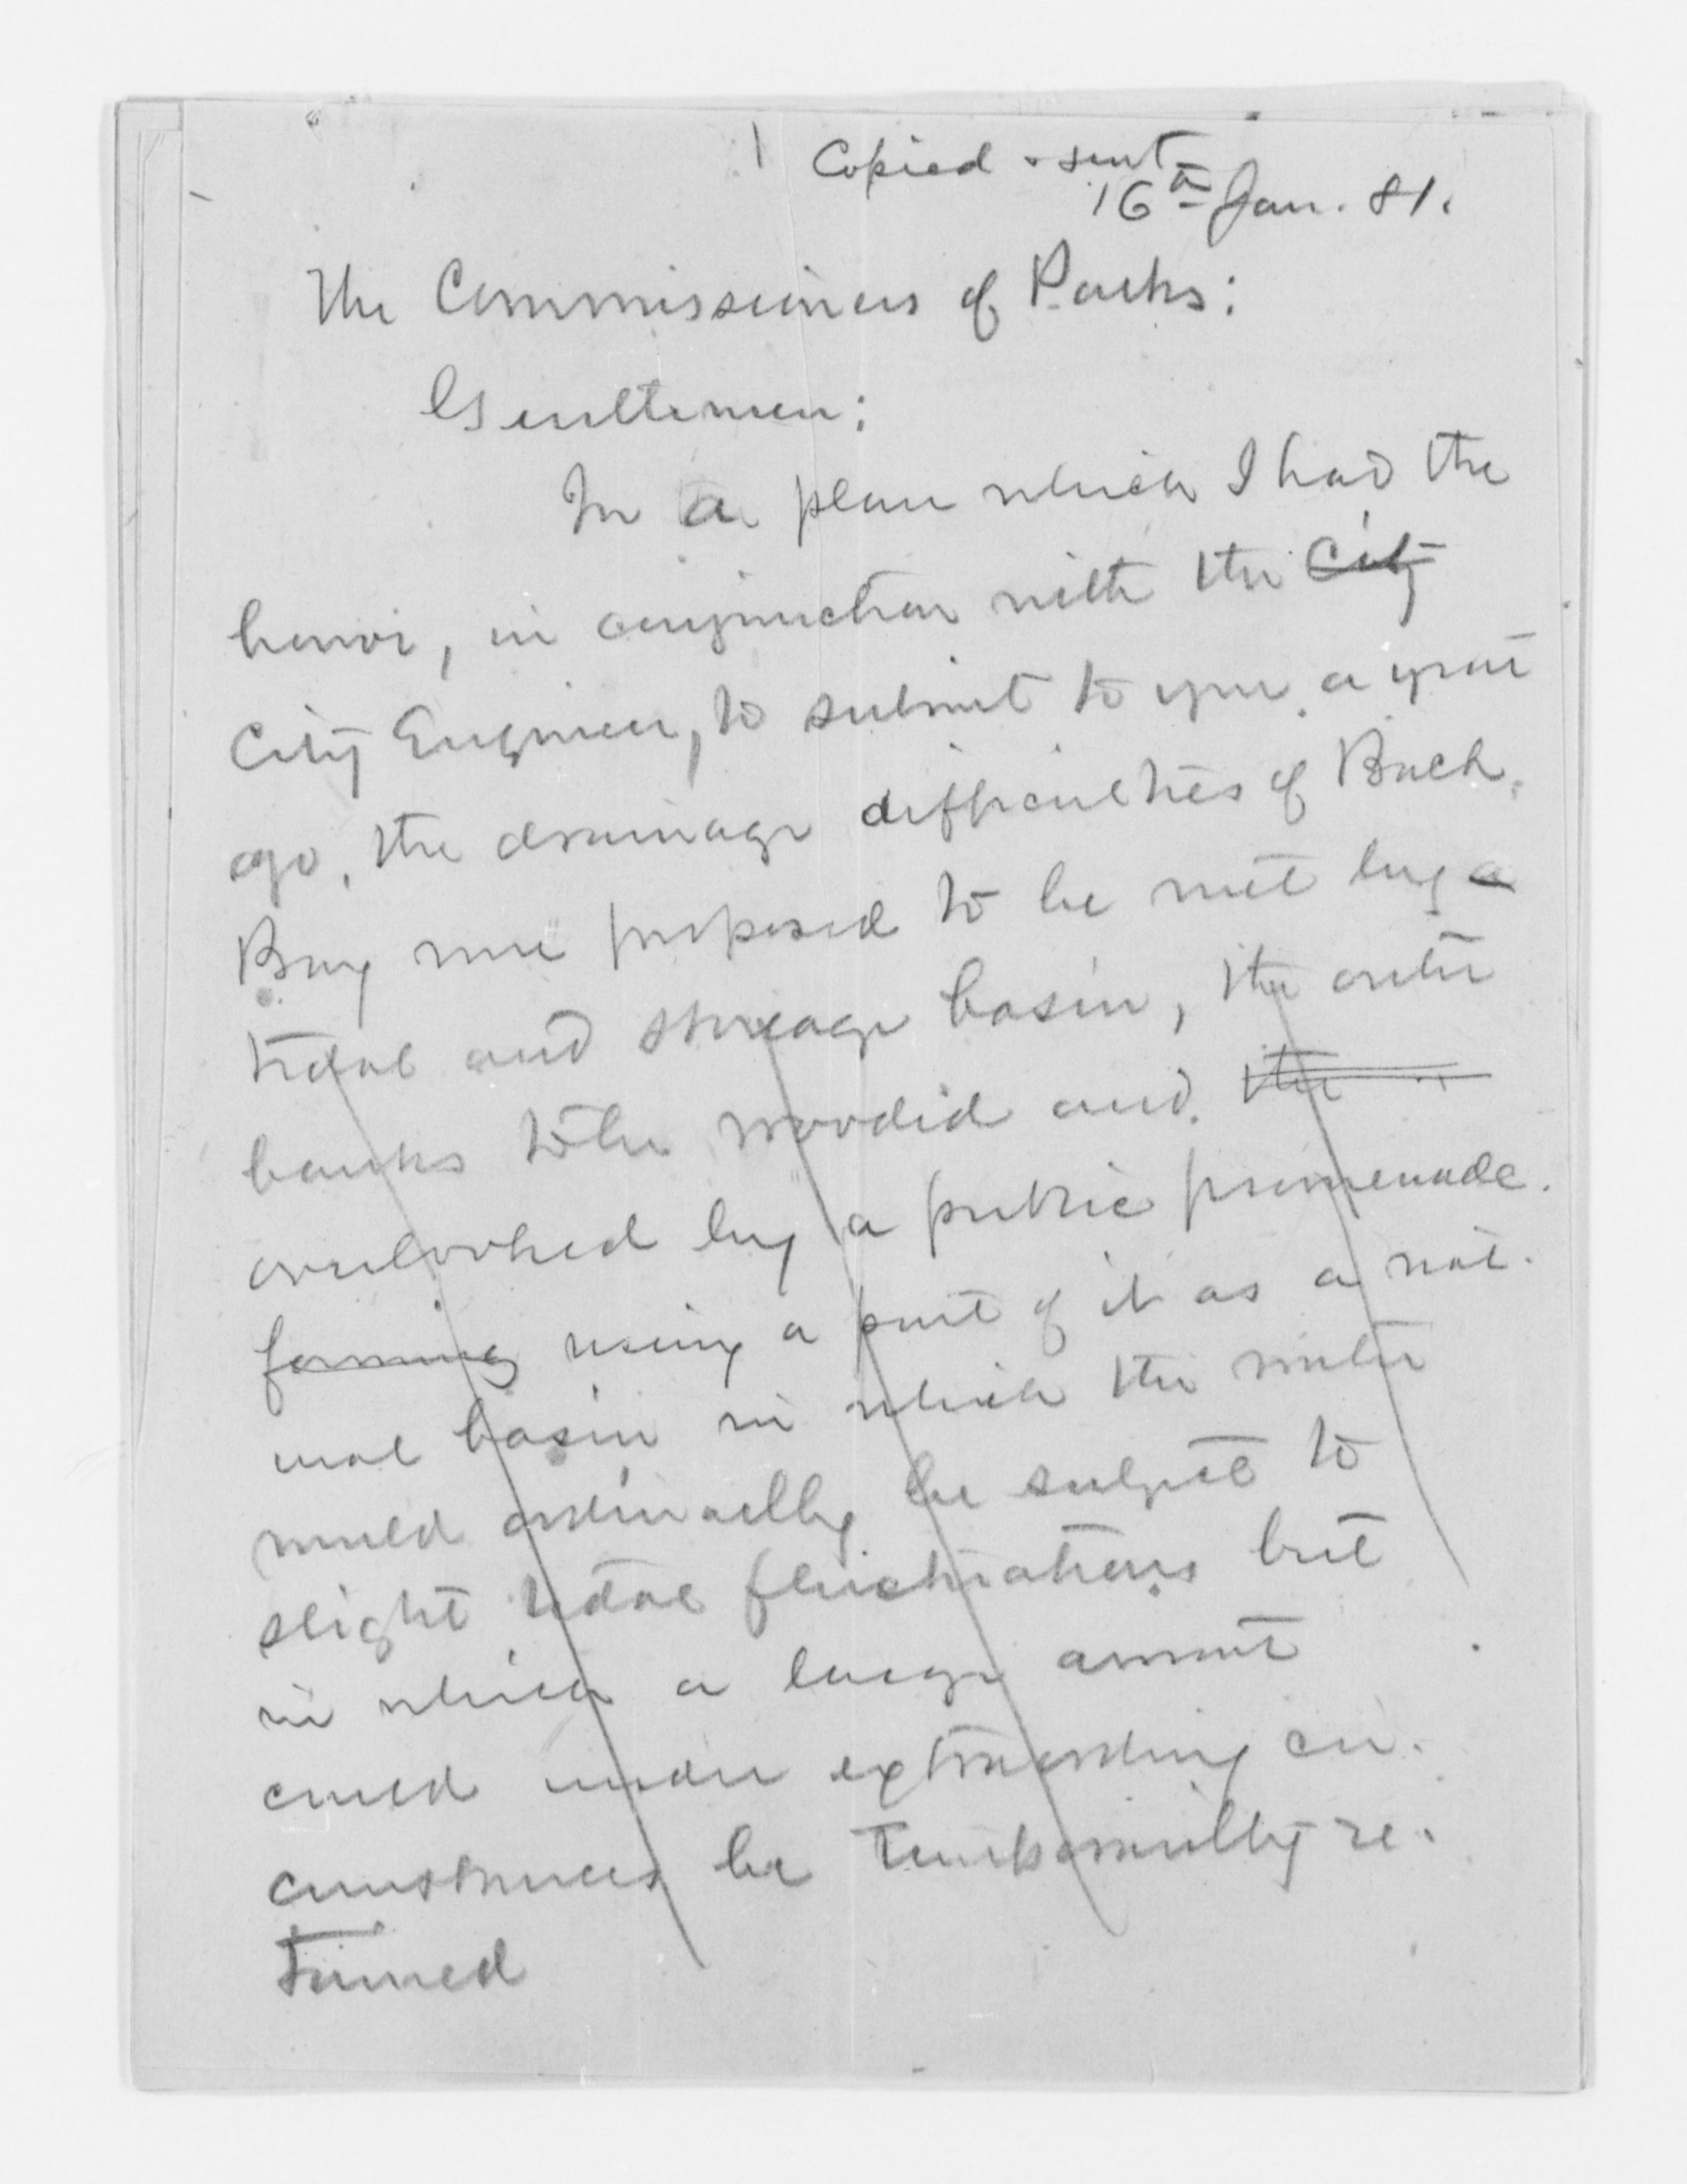 1 Copied & sent
16th Jan. 81.
The Commissioners of Parks:
Gentlemen:
In a plan which I had the
honor, in conjunction with the City
City Engineer, to submit to you a year
ago, the drainage difficulties of Back
Bay were proposed to be met by a
tidal and storage basin, the outer
banks to be wooded and the
overlooked by a public promenade.
forming using a part of it as a nat-
ural basin in which the water
would ordinarily be subject to
slight tidal fluctuations but
in which a large amount
could under extraordinary cir-
cumstances be temporarily re-
tained